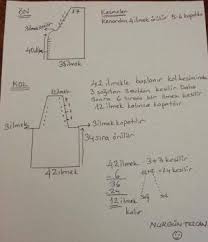 ÖN
17
3 ilmek
40 sıra
38 ilmek
Kesmeler
Kenardan 4 ilmek örülür 5-6 kapatılır
KOL
42 ilmekle başlanır kol kesiminde
3 sağdan 3 soldan kesilir. Daha
sonra 6 sırada bir ilmek kesilir
12 ilmek kalınca kapatılır.
12 ilmek
3 ilmek
3 ilmek kapatılır
34 sıra örülür
42 ilmek
42 ilmek 3+3 kesilir
- 6
36
24
12 ilmek
kalır
NURGÜN TEZCAN